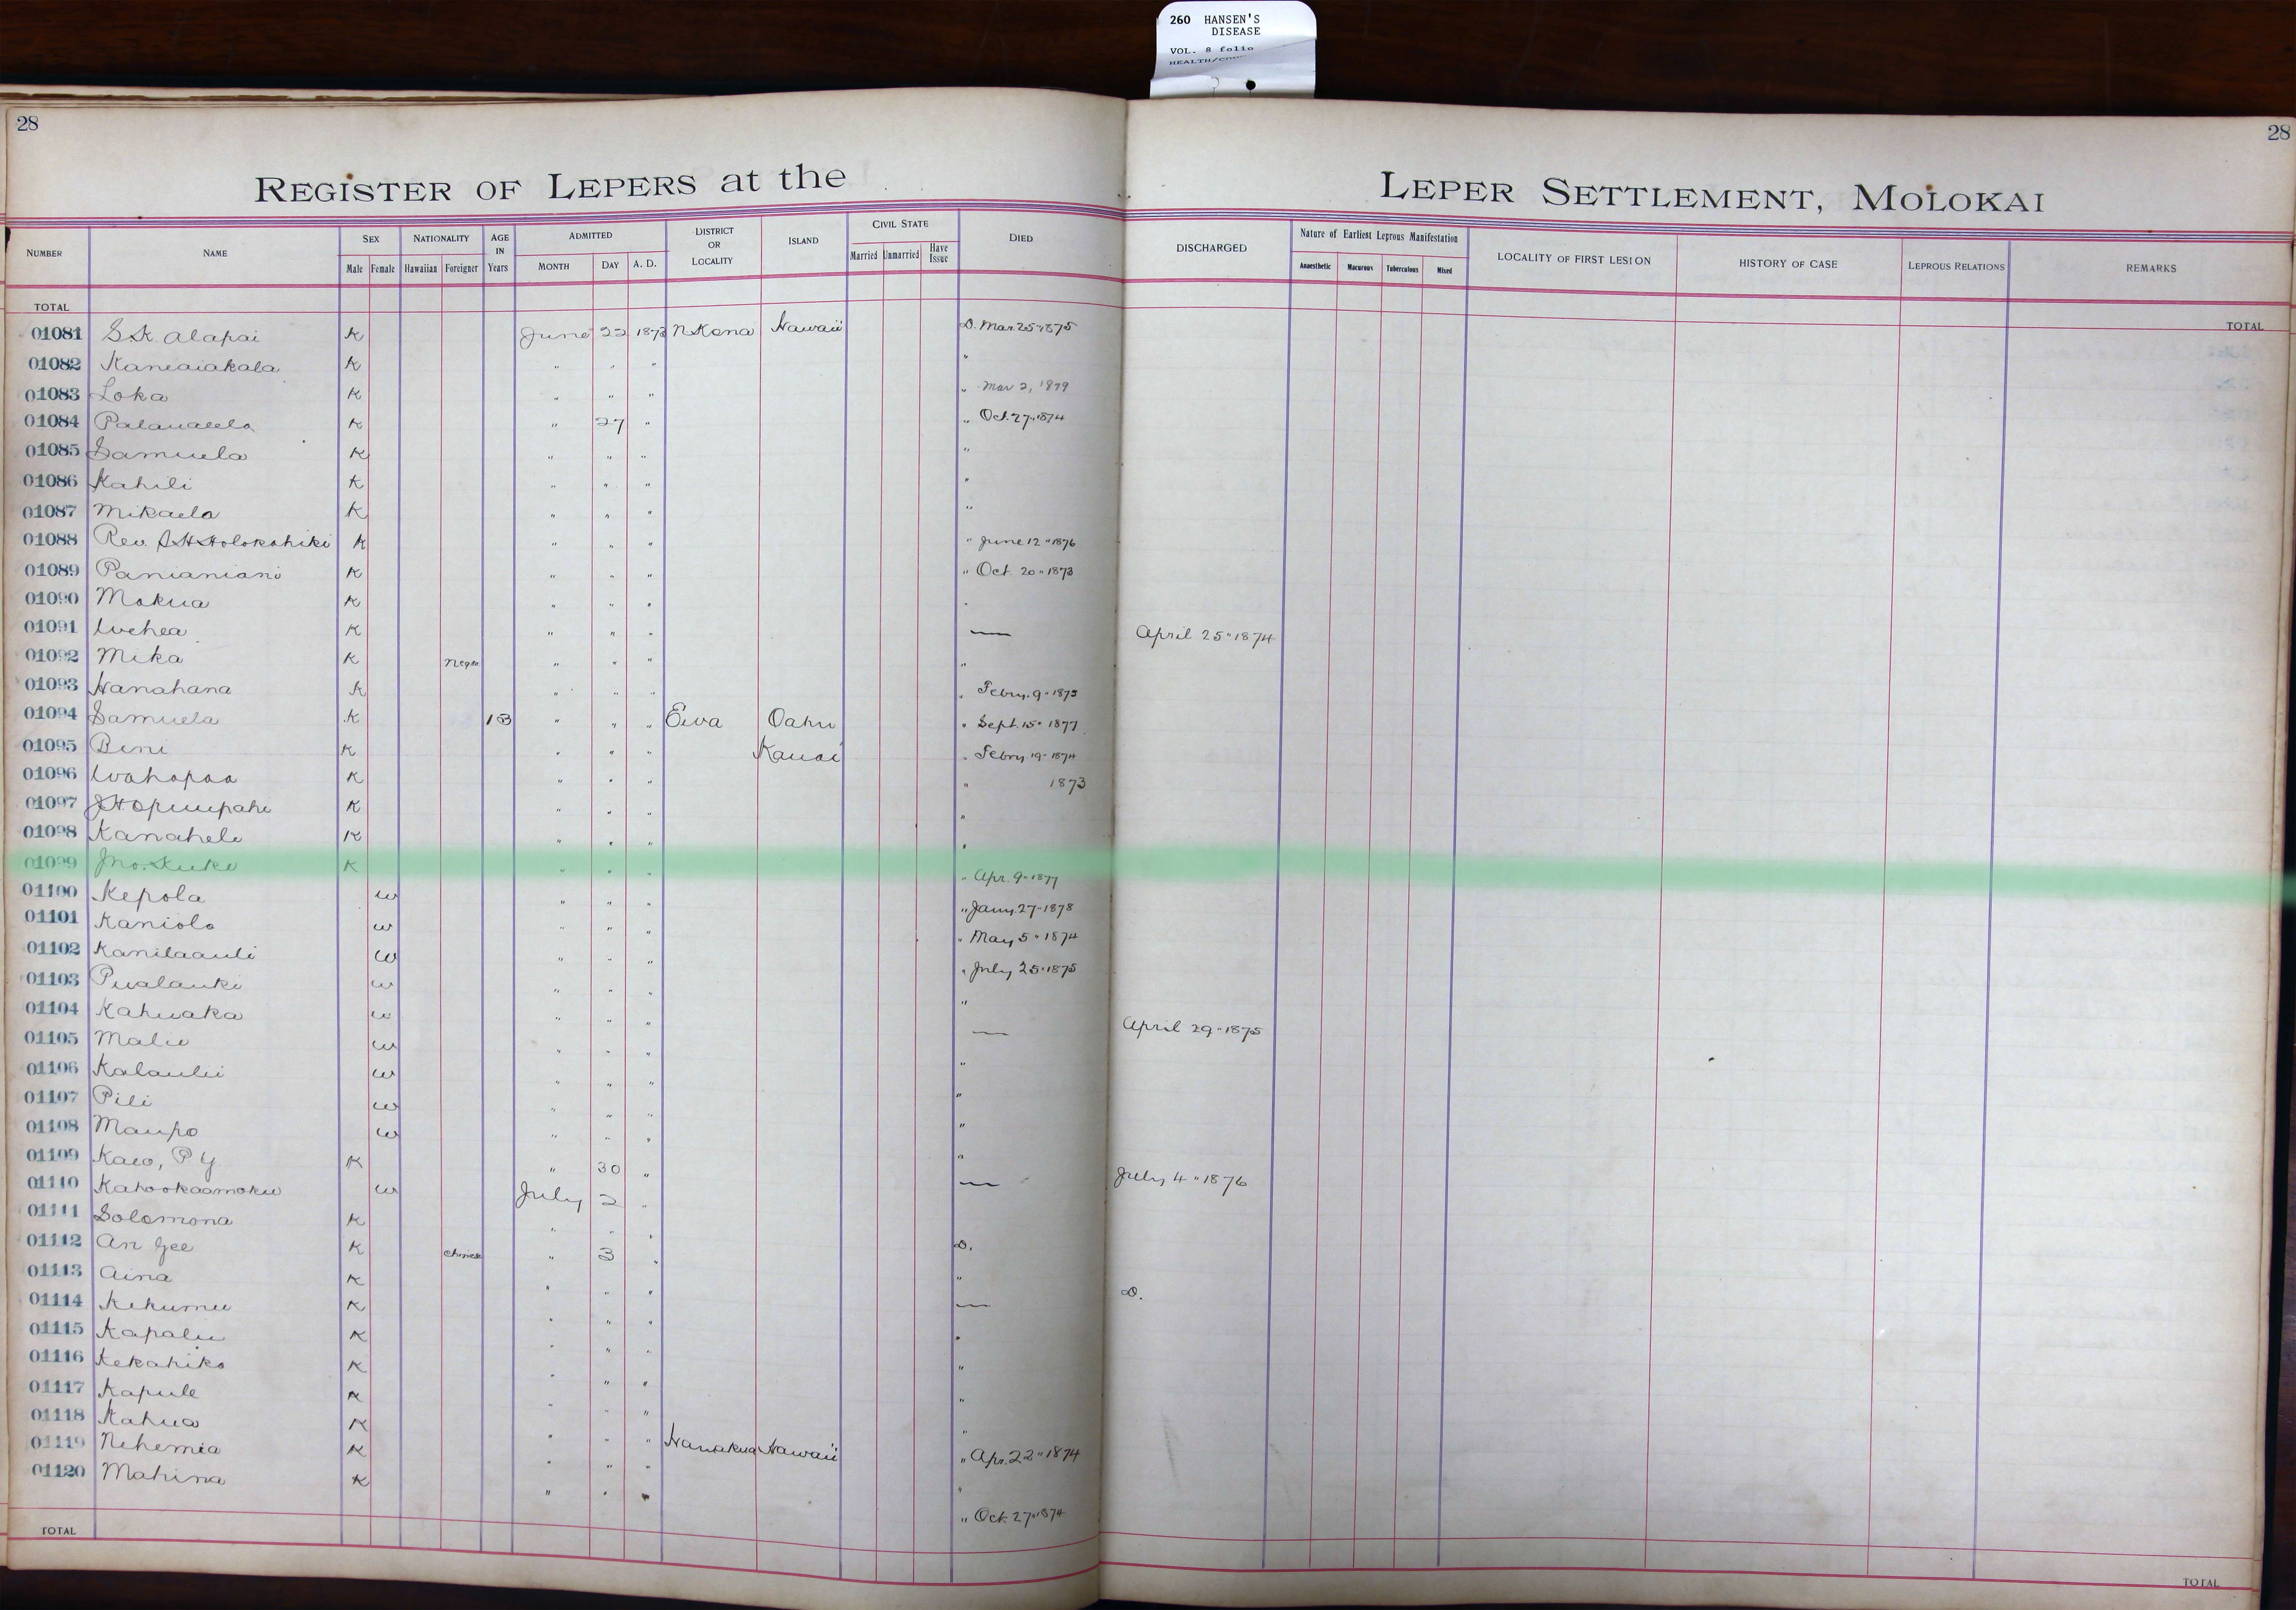 260 HANSEN'S
DISEASE
VOL. 8 folio
28
28
REGISTER OF LEPERS at the LEPER SETTLEMENT, MOLOKAI
NUMBER NAME SEX Male Female NATIONALITY Hawaiian Foreigner AGE IN Years ADMITTED MONTH DAY A. D. DISTRICT OR LOCALITY ISLAND CIVIL STATE Married Unmarried Have Issue DIED DISCHARGED Nature of Earliest Leprous Manifestation Anaesthetic Macurous Tuberculous Mixed LOCALITY OF FIRST LESION HISTORY OF CASE LEPROUS RELATIONS REMARKS
TOTAL TOTAL
01081 S.K. Alapai K June 22 1873 N Kona Hawaii D. Mar. 25 " 1875
01082 Kaneaiakala K " " " "
01083 Loka K " " " " Mar 2, 1879
01084 K " 27 " " Oct. 27 " 1874
01085 Samuela K " " " "
01086 Kahili K " " " "
01087 Mikaela K " " " "
01088 Rev. S H Holokahiki K " " " " June 12 " 1876
01089 Panianiani K " " " " Oct. 20 " 1873
01090 Mokua K " " " "
01091 Wehea K " " " — April 25 " 1874
01092 Mika K Negro " " " "
01093 Hanahana K " " " " Febry. 9 " 1875
01094 Samuela K 13 " " " Ewa Oahu " Sept. 15 " 1877
01095 Beni K " " " Kauai " Febry 19 " 1874
01096 Wahapaa K " " " " 1873
01097 J.H. Opiuupahi K " " " "
01098 Kanahele K " " " "
01099 Jno. Kuke K " " " " Apr. 9 " 1877
01100 Kepola w " " " " Jany. 27 " 1878
01101 Kaniolo w " " " " May 5 " 1874
01102 Kanilaauli w " " " " July 25 " 1875
01103 Pualauki w " " " "
01104 Kahuaka w " " " — April 29 " 1875
01105 Malie w " " " "
01106 Kalaulii w " " " "
01107 Pili w " " " "
01108 Maupo w " " " "
01109 Kaeo, P Y K " 30 " — July 4 " 1876
01110 Kahookaamoku w July 2 "
01111 Solomona K " " " D.
01112 An Gee K Chinese " 3 " "
01113 Aina K " " " — D.
01114 Kekumu K " " " "
01115 Kapalu K " " " "
01116 Kekahiko K " " " "
01117 Kapule K " " " "
01118 Kahua K " " " Hamakua Hawaii " Apr. 22 " 1874
01119 Nehemia K " " " "
01120 Mahina K " " " " Oct. 27 " 1874
TOTAL TOTAL